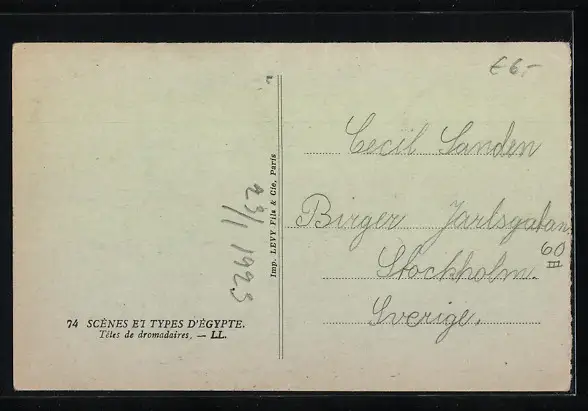 € 6,-
Cecil Sanden
Birger Jarlsgatan
60 III
Stockholm.
Sverige.
23/1 1923
Imp. LEVY Fils & Cie, Paris
74 SCÈNES ET TYPES D'ÉGYPTE.
Têtes de dromadaires. — LL.